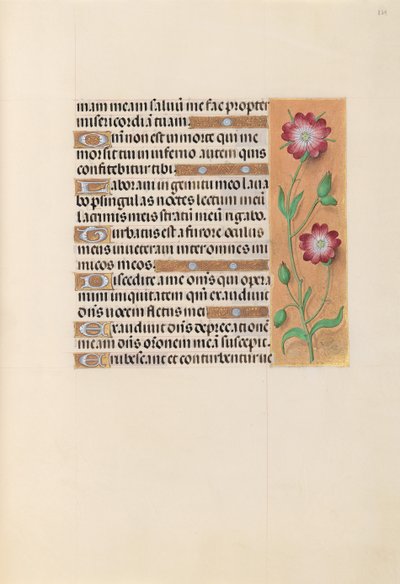 mam meam salvū me fac propter
misericordiā tuam.
Qm̄ non est in morte qui me
mor sit tui in inferno autem quis
confitebitur tibi.
Laboravi in gemitu meo lava
bo p singulas noctes lectum meū
lacrimis meis stratū meū rigabo.
Turbatus est a furore oculus
meus inveteravi inter omnes ini
micos meos.
Discedite a me om̄s qui opera
mini iniquitatem qm̄ exaudivit
dn̄s vocem fletus mei
Exaudivit dn̄s deprecationē
meam dn̄s or̄onem meā suscepit.
Erubescant et conturbentur ve